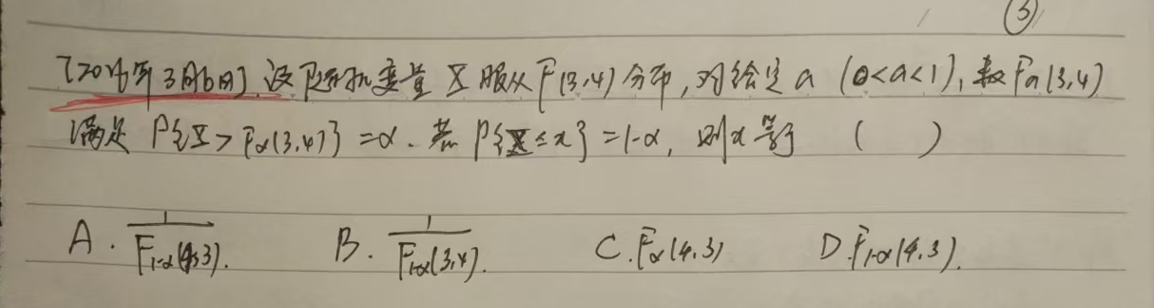 ③
[2016年3月6日]. 设随机变量 X 服从 F(3,4) 分布, 对给定 a (0<a<1), 数 Fa(3,4)
满足 P{X>Fα(3,4)}=α. 若 P{X≤x}=1-α, 则x等于 ( )
A. 1/F1-α(4,3). B. 1/F1-α(3,4). C. Fα(4,3) D. F1-α(4,3).